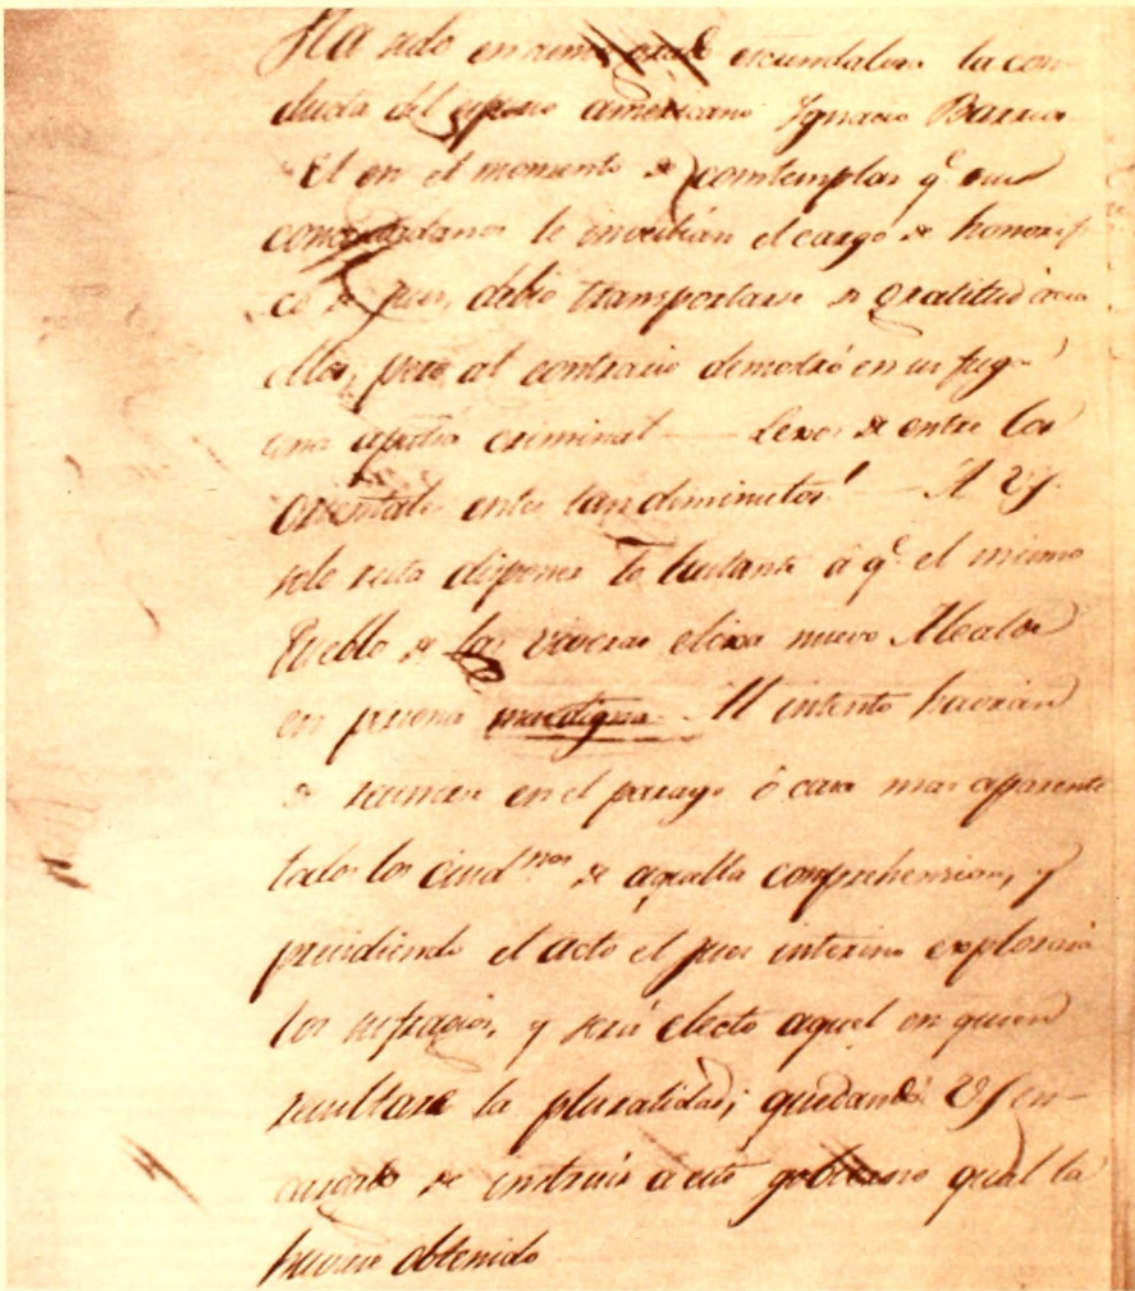 Ha sido en sumo grado escandalosa la con-
ducta del espurio americano Ignacio Barrios
El en el momento de comtemplar q.e sus
conciudadanos le investian el cargo de honorifi-
co de juez, debio transportarse de gratitud ácia
ellos, pero al contrario demostró en su fuga
una apatia criminal — Lexos de entre los
Orientales entes tan diminutos! — A VS.
solo resta disponer lo bastante á q.e el mismo
Pueblo de las Vivoras elixa nuevo Alcalde
en persona mas digna. Al intento havrán
de reunirse en el parage ó casa mas aparente
todos los ciud.nos de aquella comprehension, y
presidiendo el acto el juez interino explorará
los sufragios, y será electo aquel en quien
resultare la pluralidad; quedando VS en-
cargado de instruir á este gobierno qual la
huviese obtenido